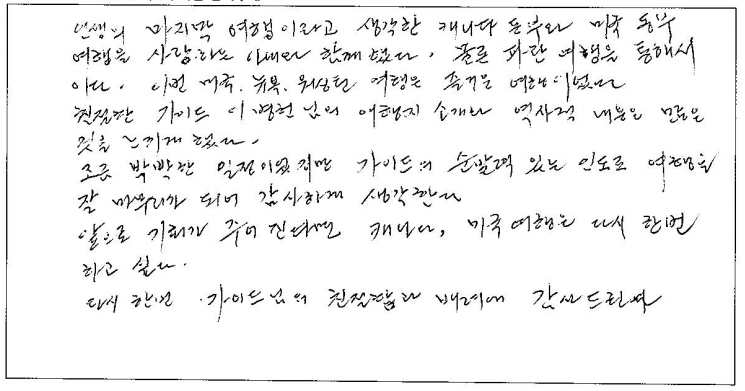 인생의 마지막 여행이라고 생각한 캐나다 동부와 미국 동부
여행을 사랑하는 아내와 함께 했다. 물론 파란 여행을 통해서
이다. 이번 미국, 뉴욕, 워싱턴 여행은 즐거운 여행이었다
친절한 가이드 이병헌 님의 여행지 소개와 역사적 내용은 많은
것을 느끼게 했다.
조금 빡빡한 일정이었지만 가이드의 순발력 있는 인도로 여행을
잘 마무리가 되어 감사하게 생각한다
앞으로 기회가 주어 진다면 캐나다, 미국여행은 다시 한번
하고 싶다.
다시 한번 가이드님의 친절함과 배려에 감사드린다